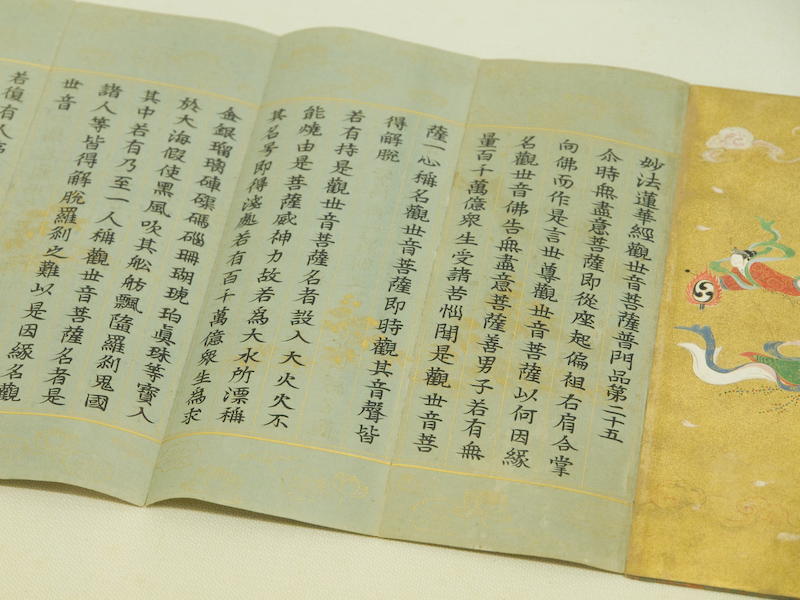 妙法蓮華經觀世音菩薩普門品第二十五
尒時無盡意菩薩即從座起偏袒右肩合掌
向佛而作是言世尊觀世音菩薩以何因緣
名觀世音佛告無盡意菩薩善男子若有無
量百千萬億眾生受諸苦惱聞是觀世音菩
薩一心稱名觀世音菩薩即時觀其音聲皆
得解脫
若有持是觀世音菩薩名者設入大火火不
能燒由是菩薩威神力故若為大水所漂稱
其名号即得淺處若有百千萬億眾生為求
金銀瑠璃硨磲碼碯珊瑚琥珀真珠等寶入
於大海假使黑風吹其舩舫飄墮羅剎鬼國
其中若有乃至一人稱觀世音菩薩名者是
諸人等皆得解脫羅剎之難以是因緣名觀
世音
若復有人